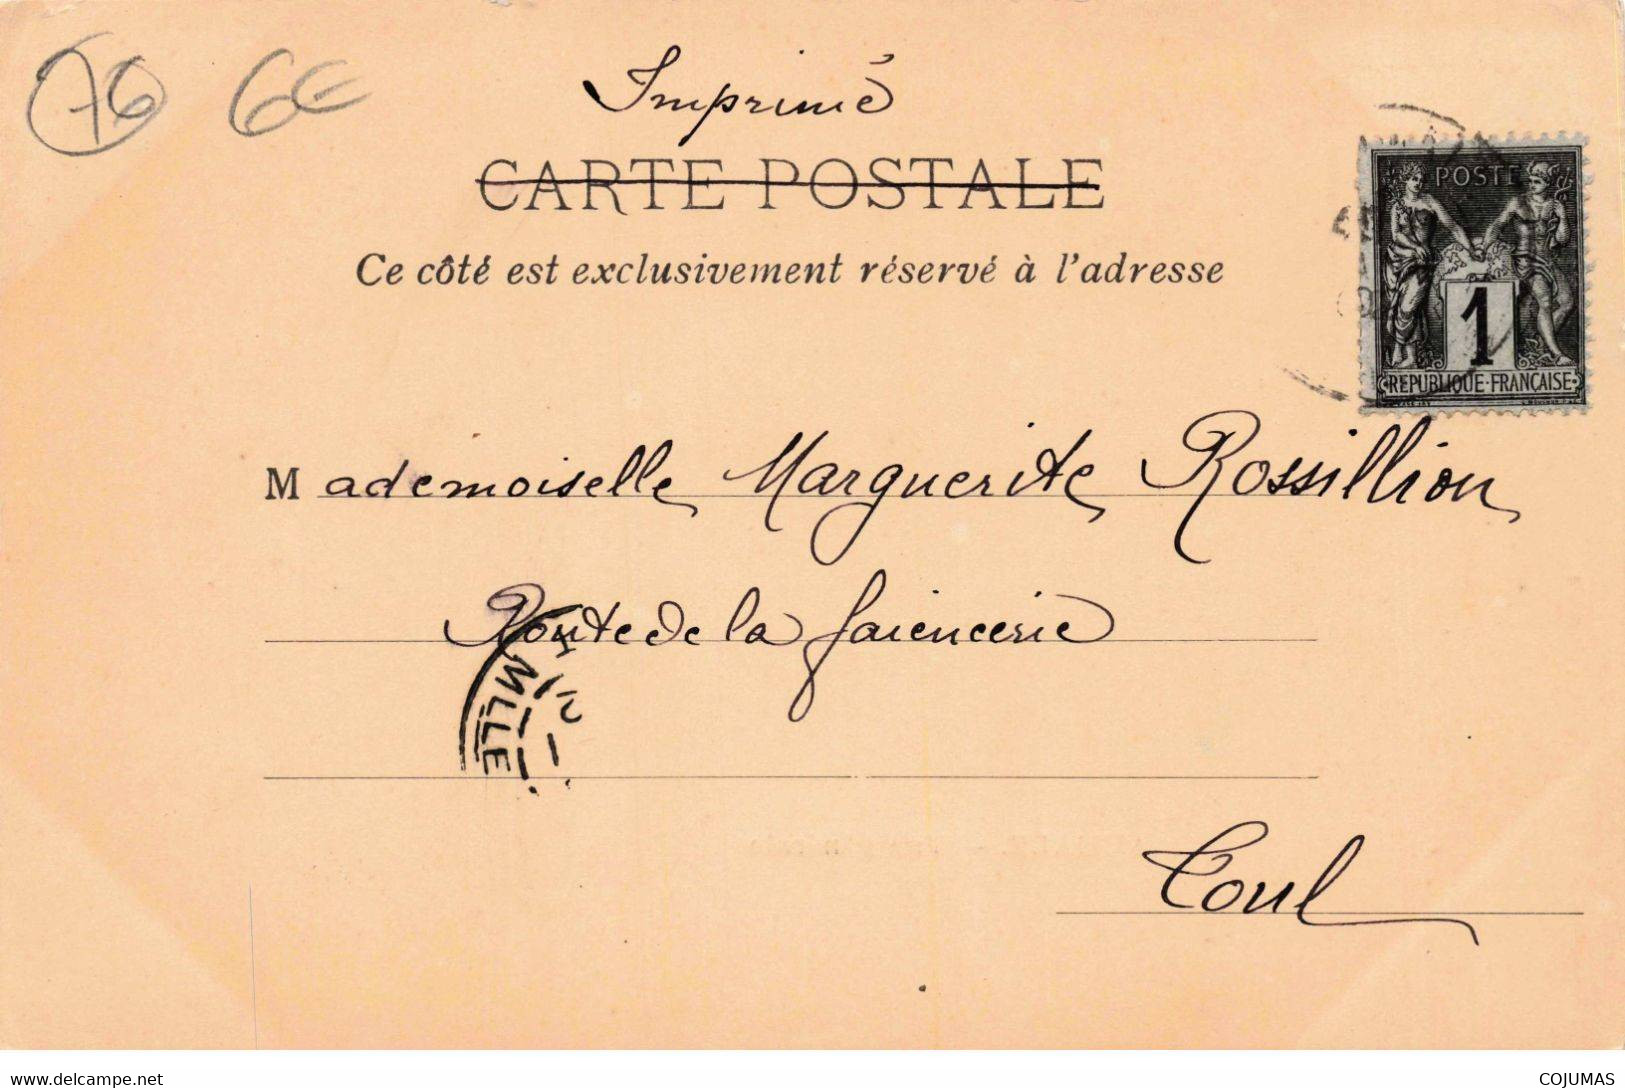 76 6€
Imprimé
CARTE POSTALE
Ce côté est exclusivement réservé à l'adresse
POSTE
1
REPUBLIQUE FRANÇAISE
Mademoiselle Marguerite Rossillion
Route de la faiencerie
MLLE
Toul
www.delcampe.net
COJUMAS